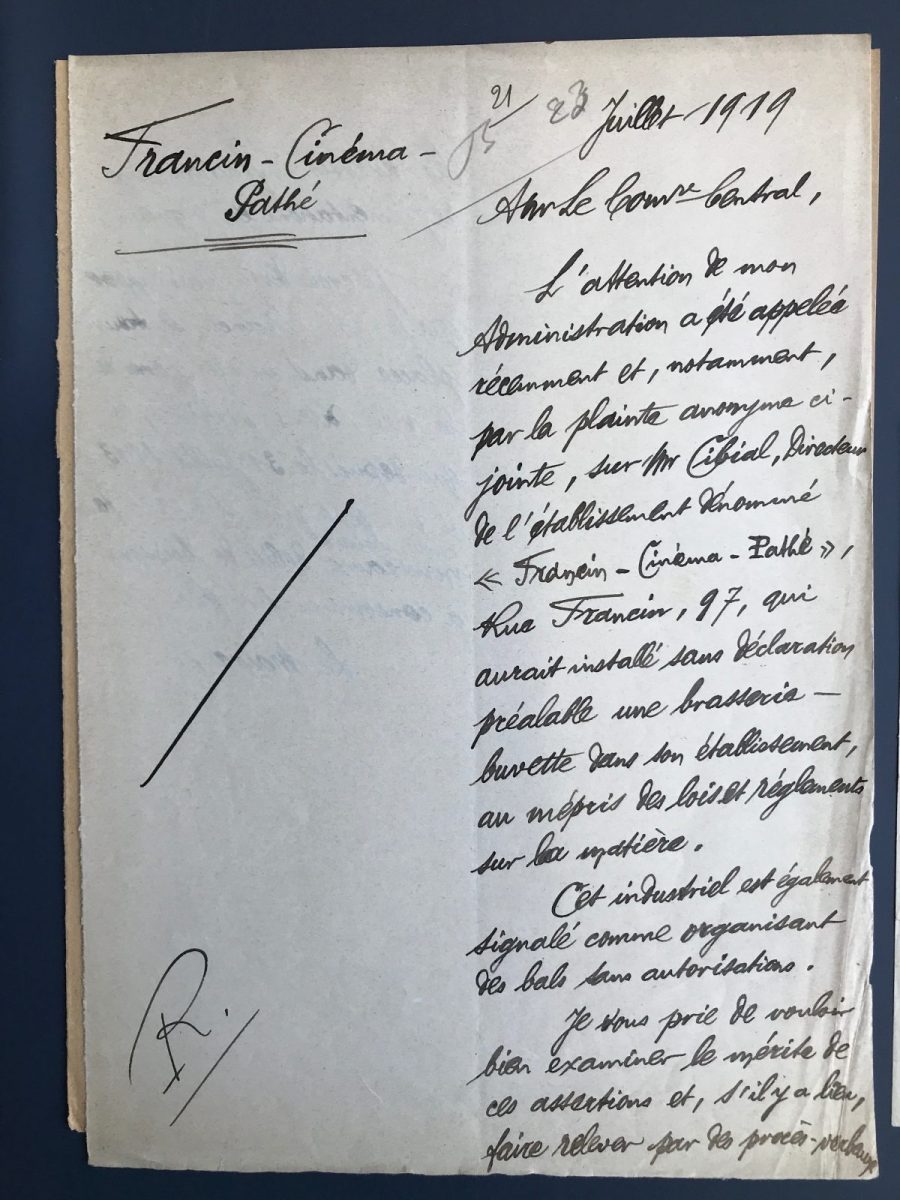 Francin - Cinéma -
Pathé
21
23 Juillet 1919
A Mr Le Comre Central,
L'attention de mon
Administration a été appelée
récemment et, notamment,
par la plainte anonyme ci-
jointe, sur Mr Cibial, Directeur
de l'établissement dénommé
« Francin - Cinéma - Pathé »,
Rue Francin, 97, qui
aurait installé sans déclaration
préalable une brasserie -
buvette dans son établissement,
au mépris des lois et réglements
sur la matière.
Cet industriel est également
signalé comme organisant
des bals sans autorisations.
Je vous prie de vouloir
bien examiner le mérite de
ces assertions et, s'il y a lieu,
faire relever par des procès-verbaux
R.